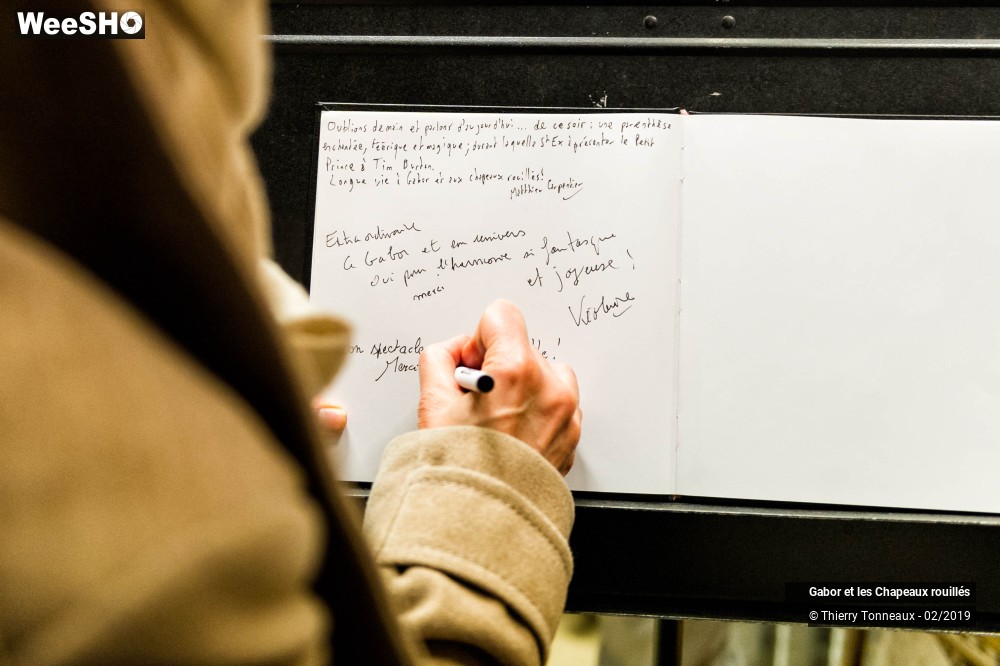 WeeSHO
Oublions demain et parlons d'aujourd'hui... de ce soir : une parenthèse
enchantée, féérique et magique ; durant laquelle St Ex a présenter le Petit
Prince à Tim Burton.
Longue vie à Gabor et aux chapeaux rouillés!
Matthieu Carpentier
Extraordinaire
Ce Gabor et en univers
oui pour l'harmonie si fantasque
et joyeuse !
merci
on spectacle
Merci
Gabor et les Chapeaux rouillés
© Thierry Tonneaux - 02/2019